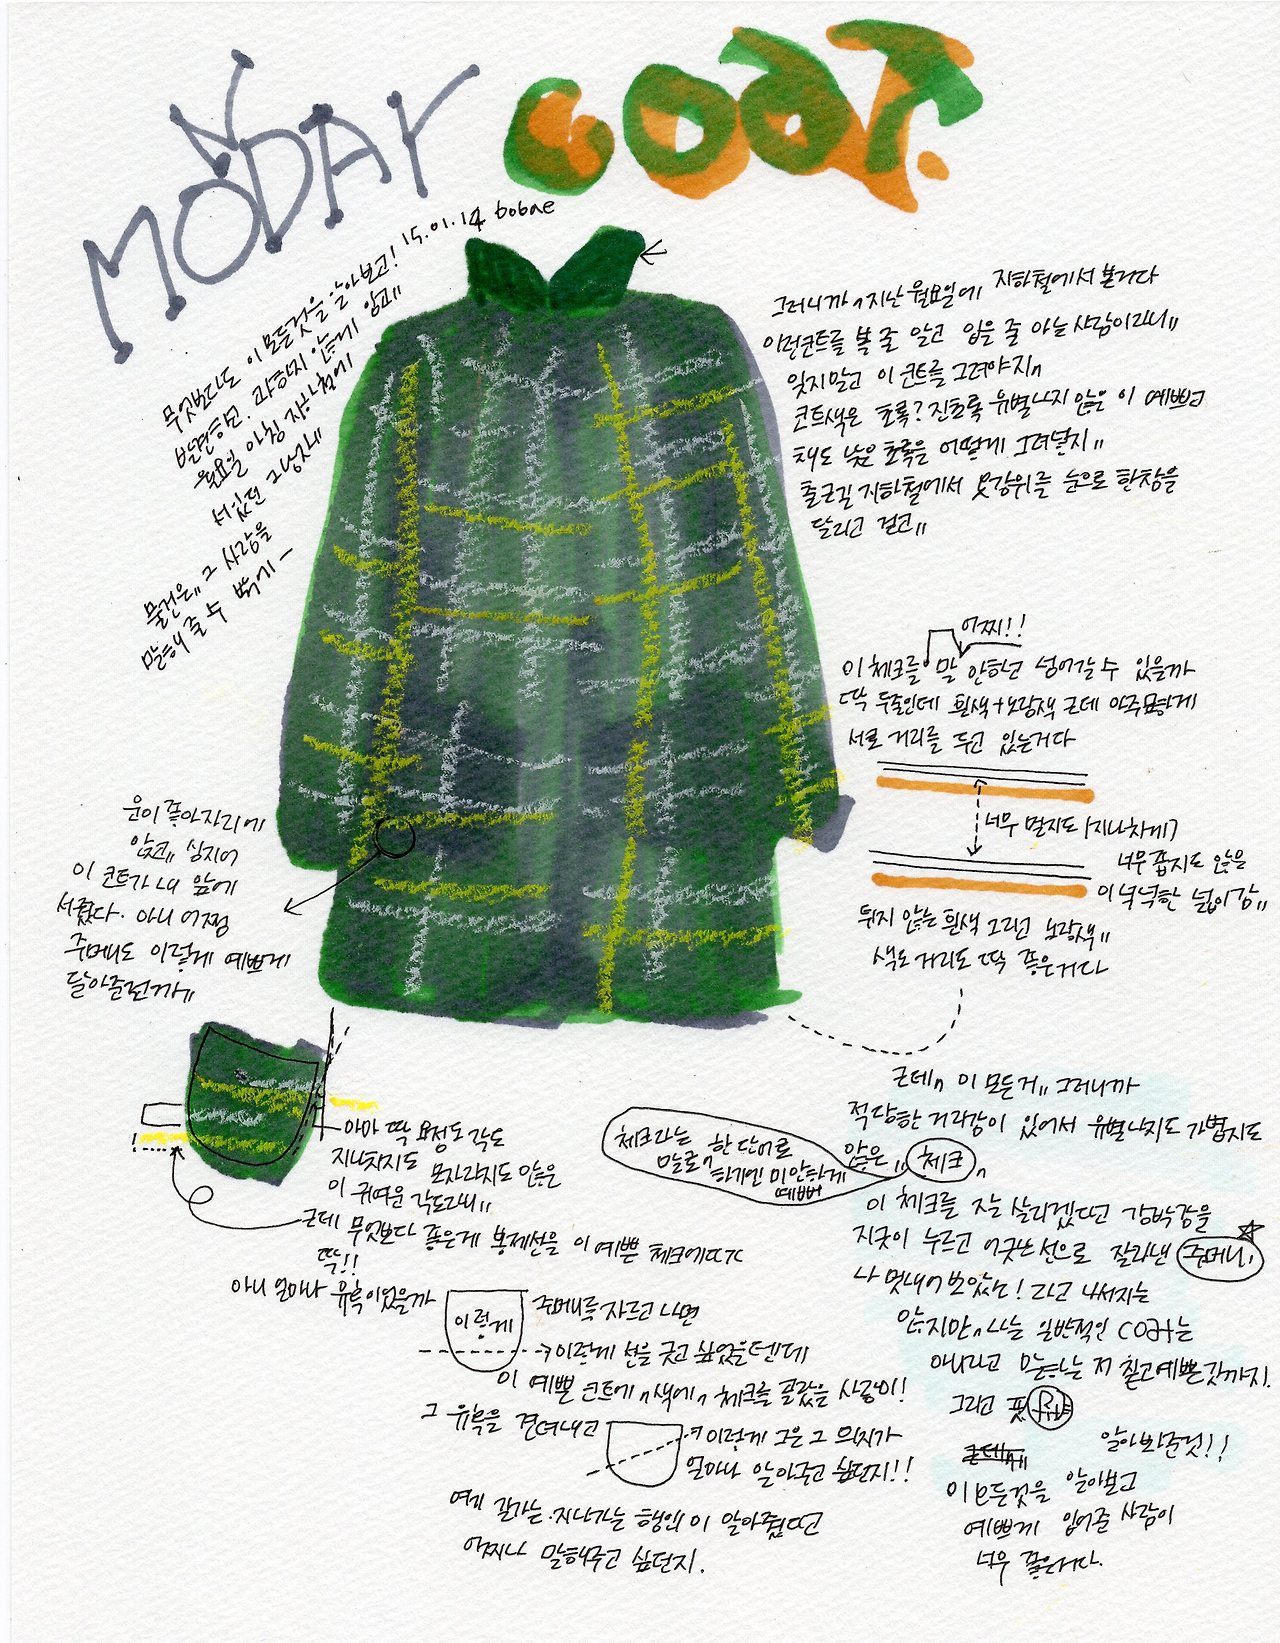 MONDAY COAT.
15.01.14 bobae
무엇보다도 이 모든것을 알아보고!
발견하고. 과하지 않게 입고"
월요일 아침 지하철에
서있던 그 남자"
물건은" 그 사람을
말해 줄 수 밖에 -
그러니까" 지난 월요일에 지하철에서 본거다
이런코트를 볼 줄 알고 입을 줄 아는 사람이라니"
잊지말고 이 코트를 그려야지"
코트색은 초록? 진초록 유별나지 않은 이 예쁘고
채도 낮은 초록을 어떻게 그려낼지"
출근길 지하철에서 옷감위를 눈으로 한참을
달리고 걷고"
어찌!!
이 체크를 말 안하고 넘어갈 수 있을까
딱 두줄인데 흰색+노랑색 근데 아주묘하게
서로 거리를 두고 있는거다
너무 멀지도 (지나치게)
너무 좁지도 않은
이 넉넉한 넓이감"
튀지 않는 흰색 그리고 노랑색"
색도 거리도 딱 좋은거다
운이 좋아 자리에
앉고" 심지어
이 코트가 내 앞에
서줬다. 아니 어쩜
주머니도 이렇게 예쁘게
달아준건까"
아마 딱 요정도 각도
지나치지도 모자라지도 않은
이 귀여운 각도라니"
근데 무엇보다 좋은게 봉제선을 이 예쁜 체크에따라
딱!!
아니 얼마나 유혹이었을까
이렇게
주머니를 자르고 나면
이렇게 선을 긋고 싶었을텐데
이 예쁜 코트에" 색에" 체크를 골랐을 사람이!
그 유혹을 견뎌내고
이렇게 그은 그 의지가
얼마나 알아주고 싶던지!!
여기 길가는. 지나가는 행인이 알아줬다고
어찌나 말해주고 싶던지.
근데" 이 모든게" 그러니까
적당한 거리감이 있어서 유별나지도 가볍지도
않은" 체크"
체크라는 한 단어로
말로" 하기엔 미안하게
예뻐
이 체크를 자 살리겠다던 강박감을
지긋이 누르고 어긋난 선으로 잘라낸 주머니,
나 멋내어 보았소! 라고 나서지는
않지만" 나는 일반적인 coat는
아니라고 말하는 저 칠고예쁜깃까지.
그리고 핏 fit
알아봐준것!!
이 모든것을 알아보고
예쁘게 입어준 사람이
너무 좋은거다.